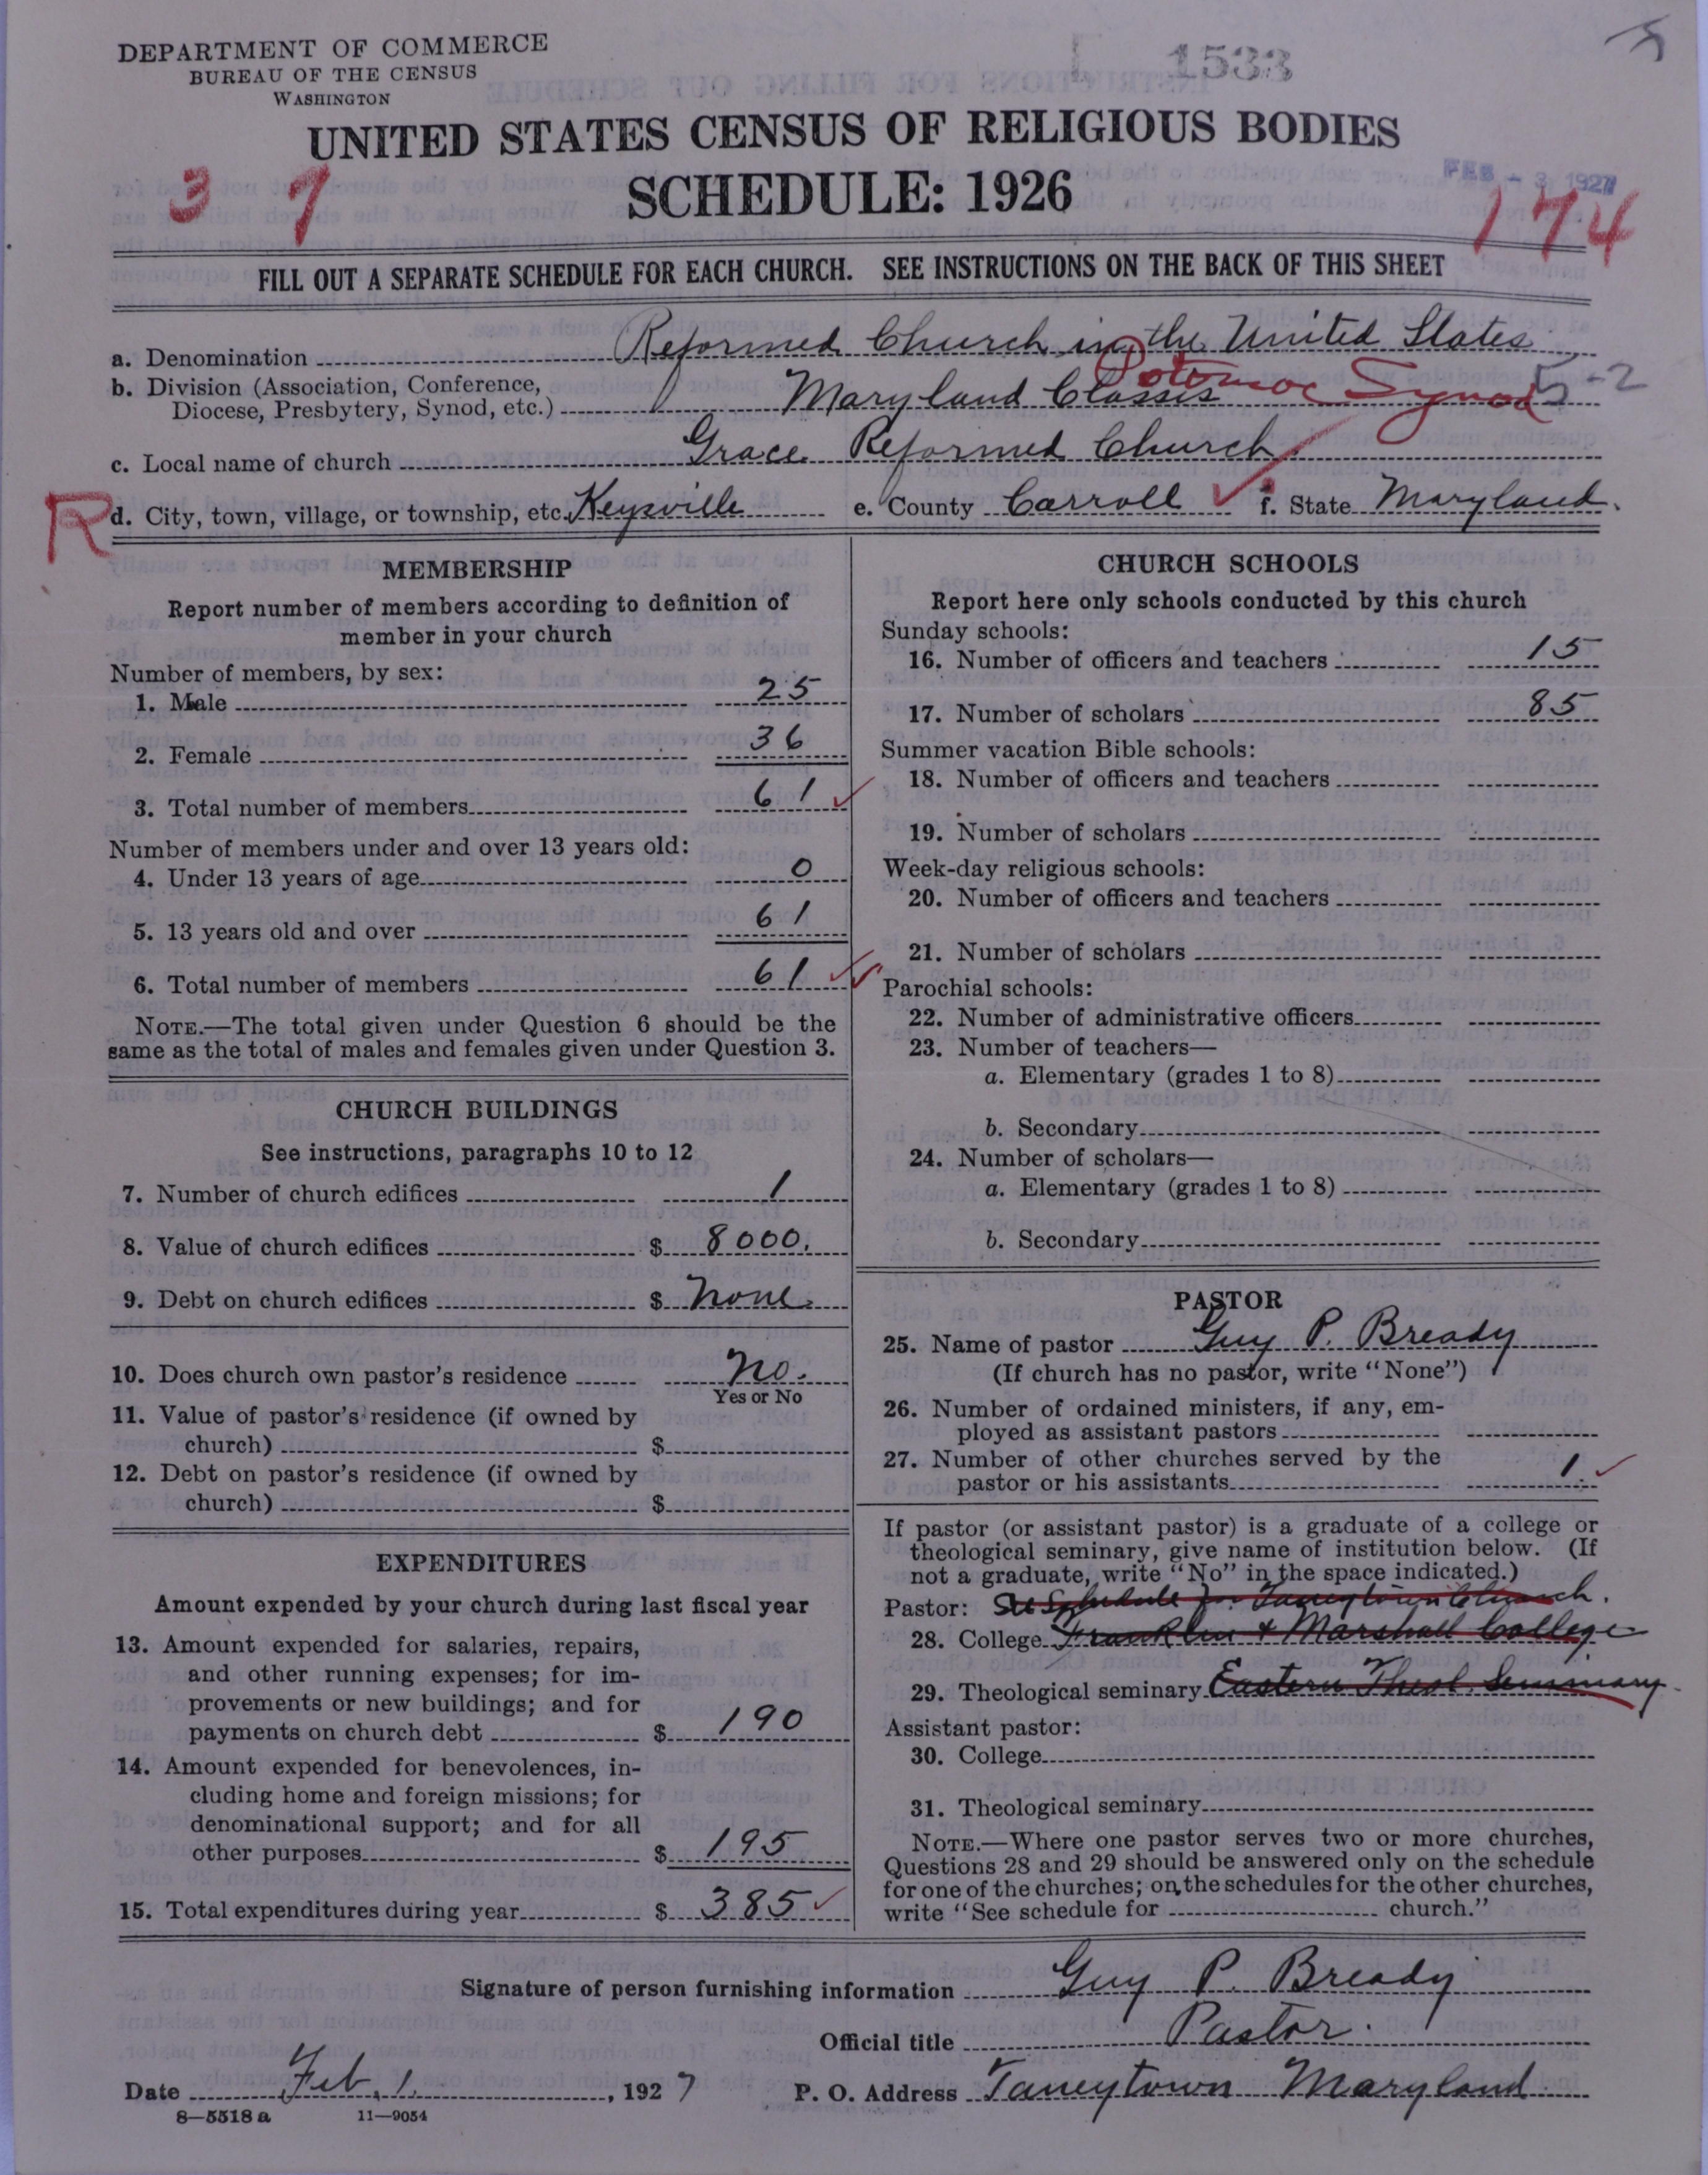 DEPARTMENT OF COMMERCE
BUREAU OF THE CENSUS
WASHINGTON
1533
UNITED STATES CENSUS OF RELIGIOUS BODIES
SCHEDULE: 1926
FEB - 3 1927
3 7
174
FILL OUT A SEPARATE SCHEDULE FOR EACH CHURCH. SEE INSTRUCTIONS ON THE BACK OF THIS SHEET
a. Denomination Reformed Church in the United States
b. Division (Association, Conference,
Diocese, Presbytery, Synod, etc.) Maryland Classis Potomac Synod 5-2
c. Local name of church Grace Reformed Church
R
d. City, town, village, or township, etc. Keysville e. County Carroll f. State Maryland.
MEMBERSHIP
Report number of members according to definition of
member in your church
Number of members, by sex:
1. Male 25
2. Female 36
3. Total number of members 61
Number of members under and over 13 years old:
4. Under 13 years of age 0
5. 13 years old and over 61
6. Total number of members 61
NOTE.—The total given under Question 6 should be the
same as the total of males and females given under Question 3.
CHURCH BUILDINGS
See instructions, paragraphs 10 to 12
7. Number of church edifices 1
8. Value of church edifices $ 8000.
9. Debt on church edifices $ None.
10. Does church own pastor's residence No.
Yes or No
11. Value of pastor's residence (if owned by
church) $
12. Debt on pastor's residence (if owned by
church) $
EXPENDITURES
Amount expended by your church during last fiscal year
13. Amount expended for salaries, repairs,
and other running expenses; for im-
provements or new buildings; and for
payments on church debt $ 190
14. Amount expended for benevolences, in-
cluding home and foreign missions; for
denominational support; and for all
other purposes $ 195
15. Total expenditures during year $ 385
CHURCH SCHOOLS
Report here only schools conducted by this church
Sunday schools:
16. Number of officers and teachers 15
17. Number of scholars 85
Summer vacation Bible schools:
18. Number of officers and teachers
19. Number of scholars
Week-day religious schools:
20. Number of officers and teachers
21. Number of scholars
Parochial schools:
22. Number of administrative officers
23. Number of teachers—
a. Elementary (grades 1 to 8)
b. Secondary
24. Number of scholars—
a. Elementary (grades 1 to 8)
b. Secondary
PASTOR
25. Name of pastor Guy P. Bready
(If church has no pastor, write "None")
26. Number of ordained ministers, if any, em-
ployed as assistant pastors
27. Number of other churches served by the
pastor or his assistants 1.
If pastor (or assistant pastor) is a graduate of a college or
theological seminary, give name of institution below. (If
not a graduate, write "No" in the space indicated.)
Pastor: See Schedule for Taneytown Church.
28. College Franklin & Marshall College
29. Theological seminary Eastern Theol. Seminary.
Assistant pastor:
30. College
31. Theological seminary
NOTE.—Where one pastor serves two or more churches,
Questions 28 and 29 should be answered only on the schedule
for one of the churches; on the schedules for the other churches,
write "See schedule for church."
Signature of person furnishing information Guy P. Bready
Official title Pastor.
Date Feb. 1. , 1927 P. O. Address Taneytown Maryland
8—5518 a 11—9054